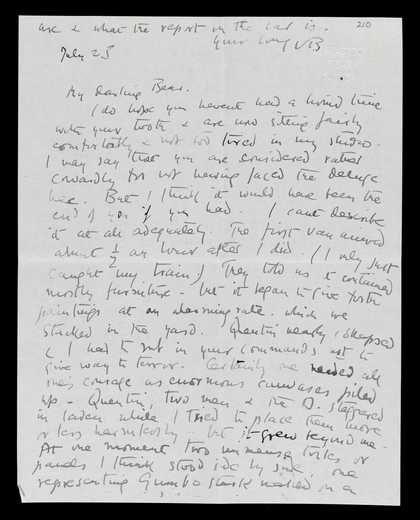 are & what the report on the car is.
Your loving VB
210
July 23
My darling Bear.
I do hope you havent had a horrid time
with your tooth & are now sitting fairly
comfortably & not too tired in my studio.
I may say that you are considered rather
cowardly for not having faced the deluge
here. But I think it would have been the
end of you if you had. I cant describe
it at all adequately. The first van arrived
about ½ an hour after I did. (I only just
caught my train) They told us it contained
mostly furniture - but it began to give forth
paintings at an alarming rate. which we
stacked in the yard. Quentin nearly collapsed
& I had to put in your commands not to
give way to terror. Certainly one needed all
one's courage as enormous canvases piled
up - Quentin, two men & the D. staggered
in laden while I tried to place them more
or less harmlessly but it grew beyond me.
At one moment two immense torsos or
panels I think stood side by side. one
representing Gumbo stark naked on a